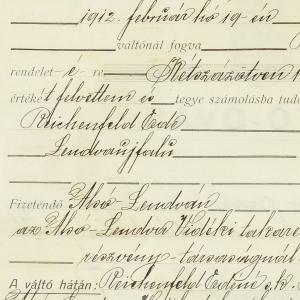 1912. február hó 19-én
váltónál fogva
rendelet-e-re Kétszázötven
értékét felvettem és tegye számolásba tud
Reichenfeld Ede
Lendvaujfalu
Fizetendő Alsó-Lendván
az Alsó-Lendva Vidéki takaré
részvény-társaságnál
A váltó hátán: Reichenfeld Edéné s.k.